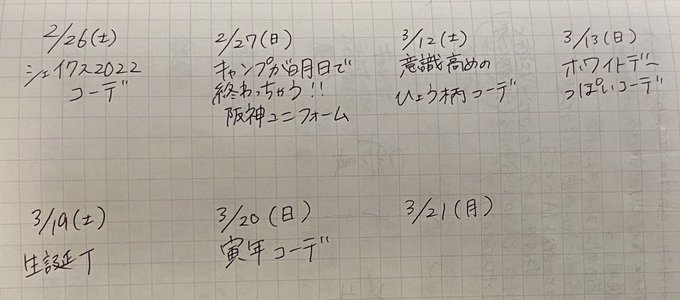 2/26(土)
シェイクス2022
コーデ
2/27(日)
キャンプが明日で
終わっちゃう!!
阪神ユニフォーム
3/12(土)
意識高めの
ひょう柄コーデ
3/13(日)
ホワイトデー
っぽいコーデ
3/19(土)
生誕T
3/20(日)
寅年コーデ
3/21(月)